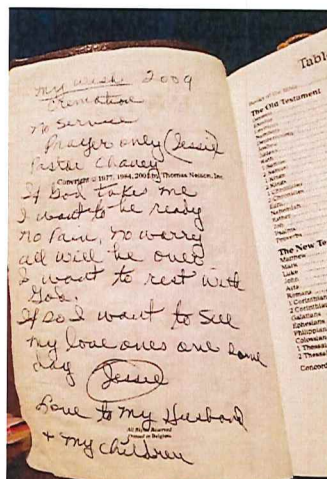 my wish 2009
Cremation
no Service
Prayer only (Jessie)
Pastor Chaney
Copyright © 1977, 1984, 2001 by Thomas Nelson, Inc.
If God takes me
I want to be ready
no Pain, no worry
all will be over
I want to rest with
God.
If so I want to See
my love ones one some
day Jessie
Love to my Husband
All Rights Reserved
Printed in Belgium
+ my children
Table
The Old Testament
Nehemiah
Esther
Job
Psalms
Proverbs
The New Te
Matthew
Mark
Luke
John
Acts
Romans
1 Corinthian
2 Corinthian
Galatians
Ephesians
Philippians
Colossian
1 Thessal
2 Thessal
Concord